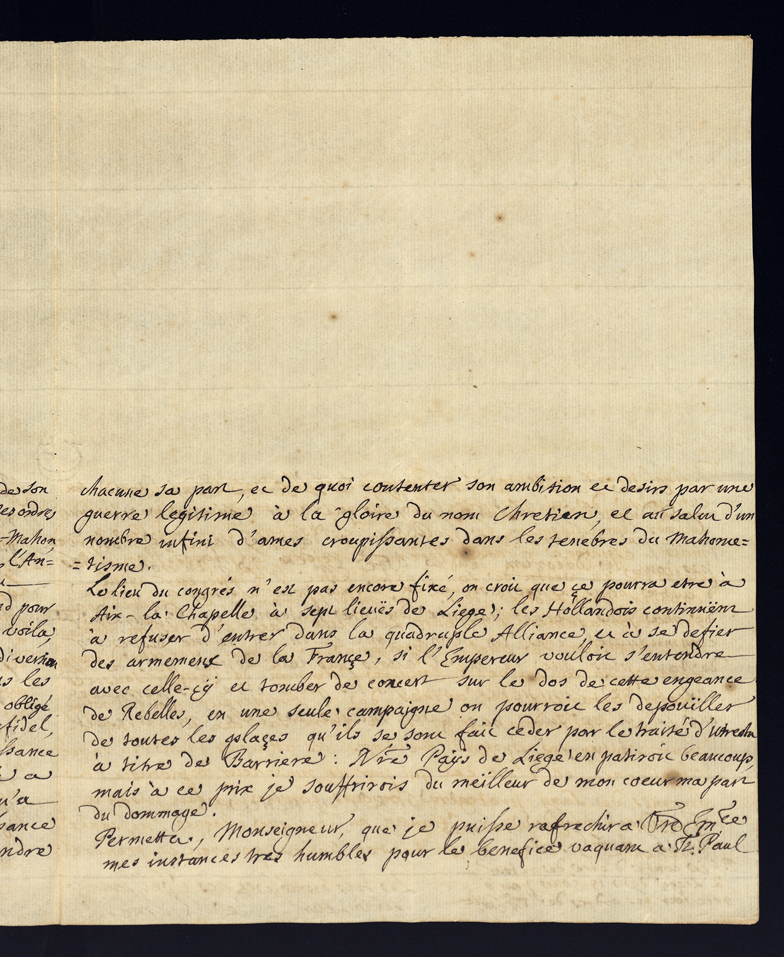 de son
ses ordres
=Mahon
l'An=
nd pour
voila,
diversion
s les
obligé
fidel,
ssance
a
u'a
sance
ndre
chacune sa part, et de quoi contenter son ambition et desirs par une
guerre legitime à la gloire du nom Chretien, et au salut d'un
nombre infini d'ames croupissantes dans les tenebres du Mahome=
=tisme.
Le lieu du congrés n'est pas encore fixé, on croit que çe pourra etre à
Aix-la Chapelle à sept lieuës de Liege; les Hollandois continuënt
à refuser d'entrer dans la quadruple Alliance, et à se defier
des armements de la Françe, si l'Empereur vouloit s'entendre
avec celle-çÿ et tomber de concert sur le dos de cette engeance
de Rebelles, en une seule campagne on pourroit les depoüiller
de toutes les plaçes qu'ils se sont fait ceder par le traité d'utrecht
à titre de Barriere: Nre Païs de Liege en patiroit beaucoup,
mais à ce prix je souffrirois du meilleur de mon coeur ma part
du dommage.
Permetta, Monseigneur, que je puisse rafrechir a Vre Emce
mes instances tres humbles pour le benefice vaquant a St. Paul